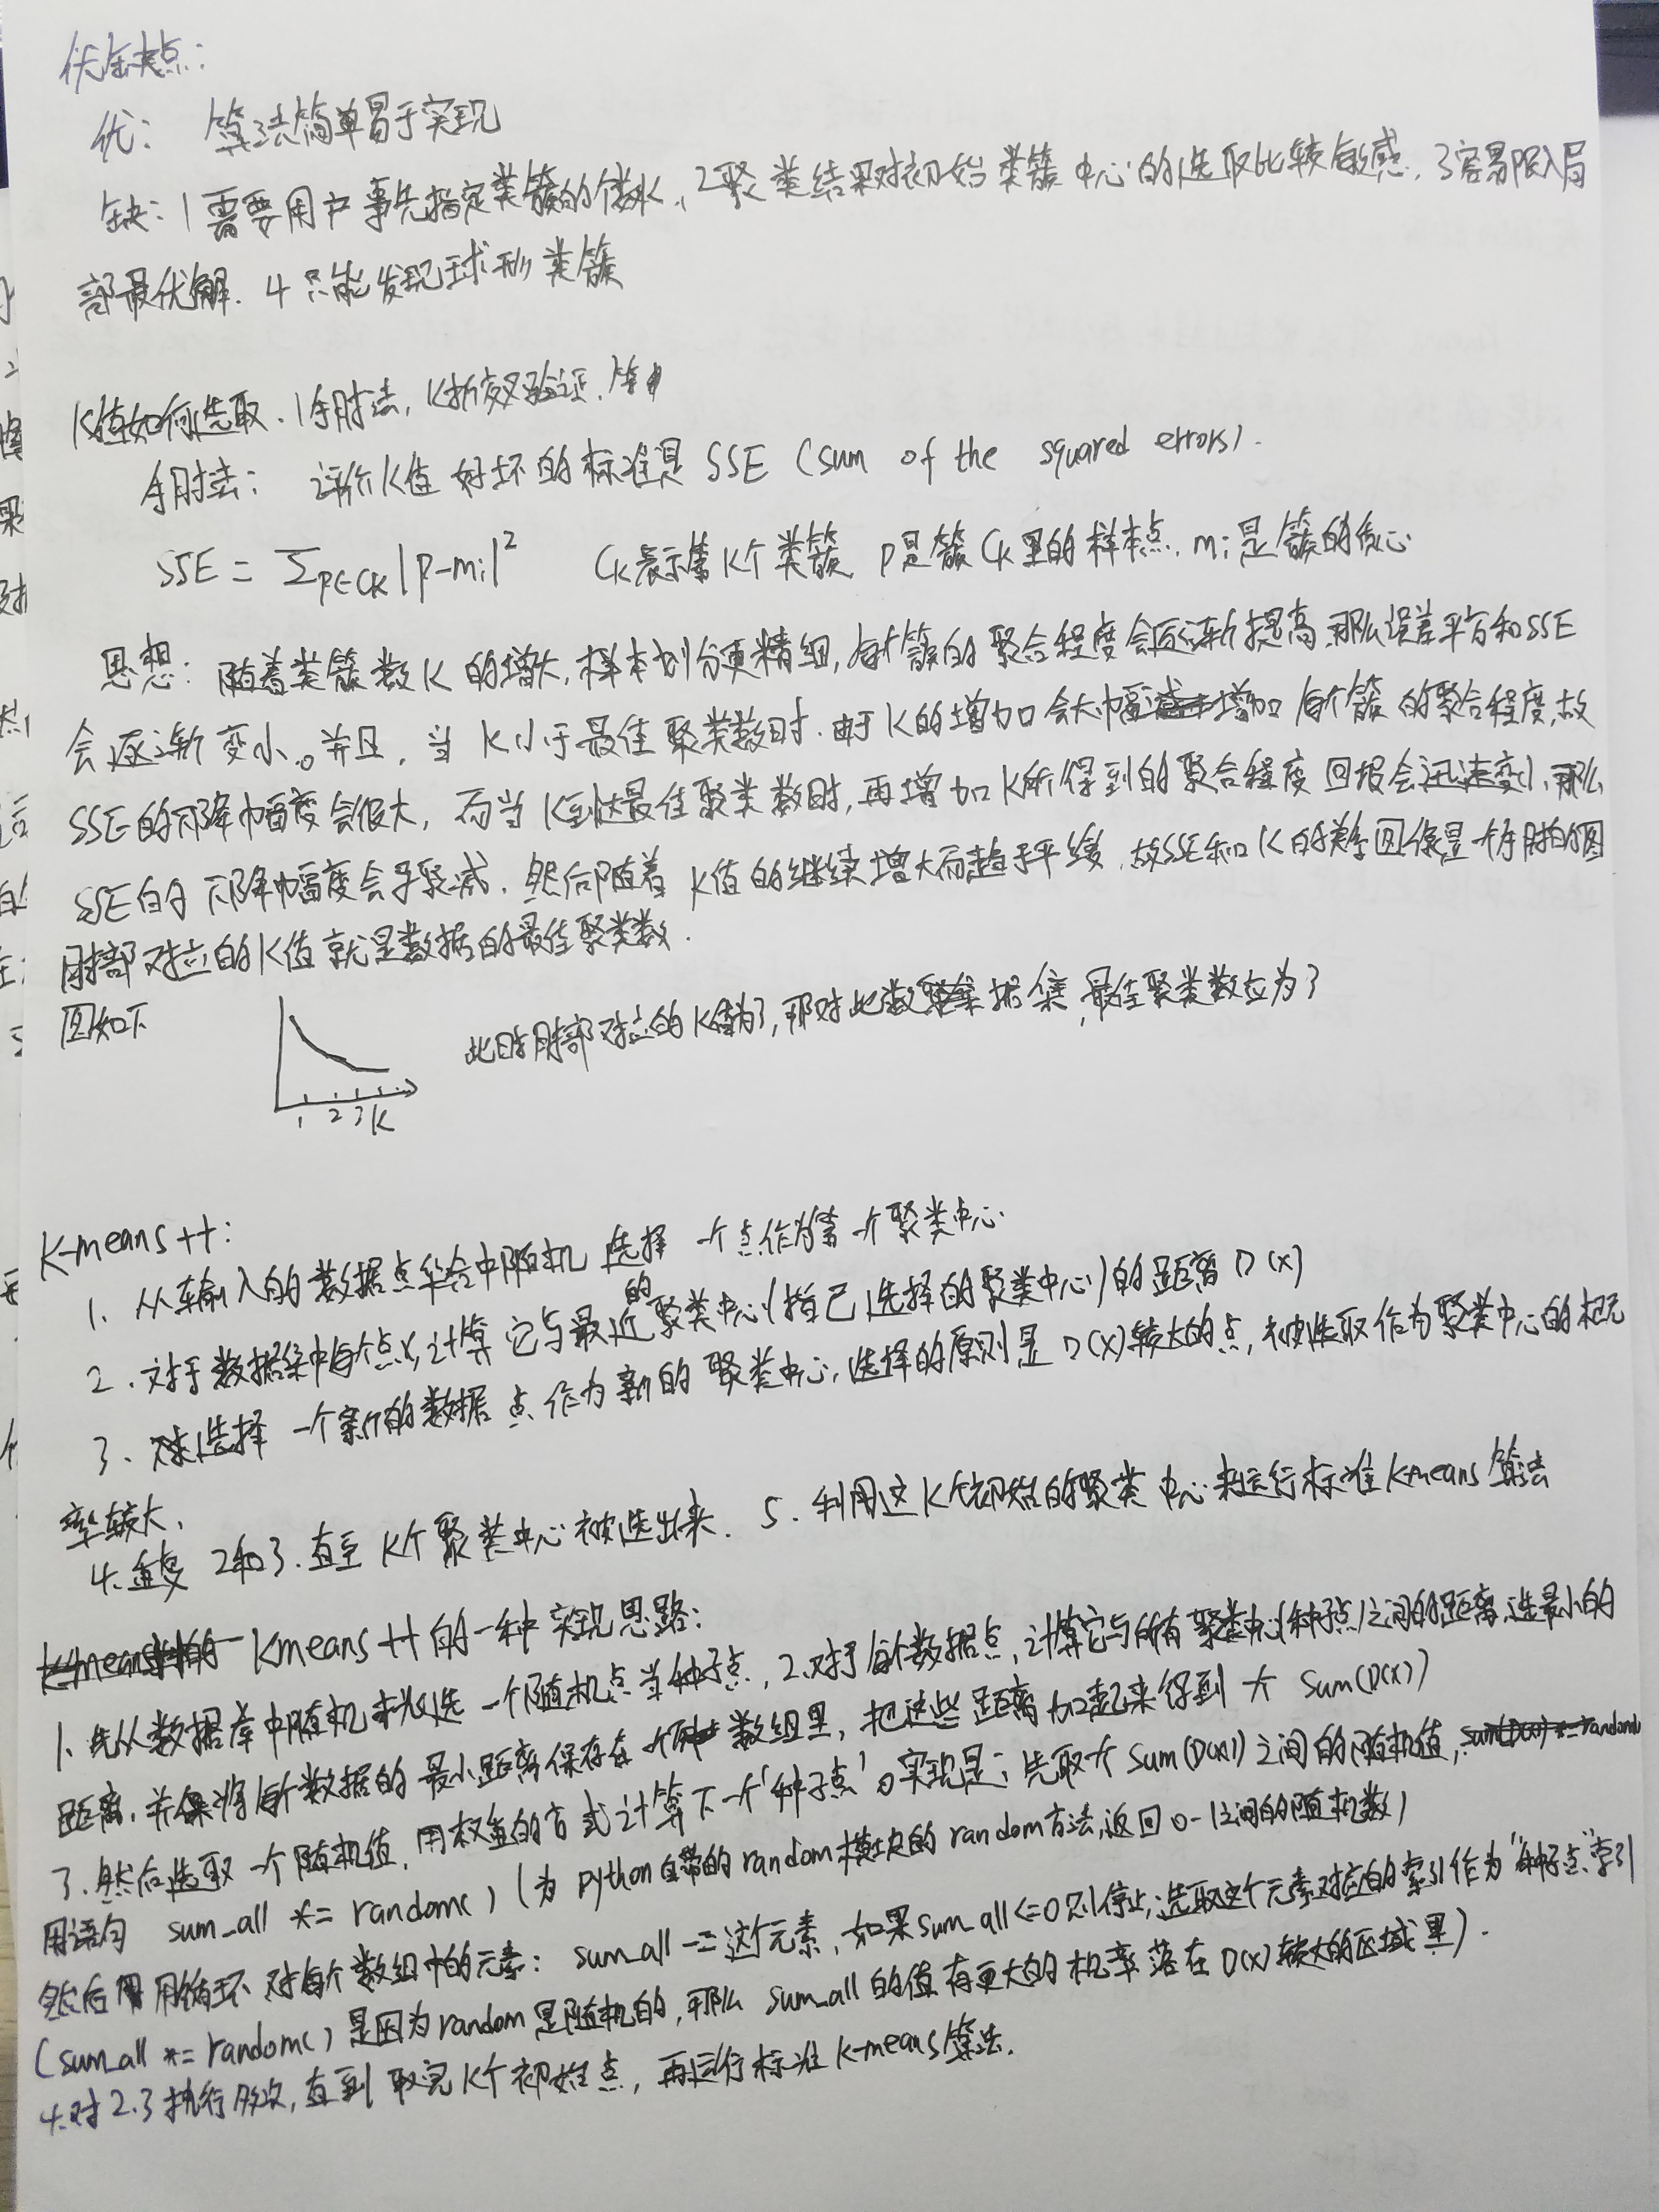 优缺点：
优： 算法简单易于实现
缺：1需要用户事先指定类簇的个数K，2聚类结果对初始类簇中心的选取比较敏感，3容易陷入局
部最优解．4只能发现球形类簇
K值如何选取．1手肘法，K折交叉验证．等
手肘法： 评价K值好坏的标准是 SSE (sum of the squared errors).
SSE = Σp∈Ck|p-mi|² Ck表示第K个类簇，p是簇Ck里的样本点．mi是簇的质心
思想：随着类簇数K的增大，样本划分更精细，每个簇的聚合程度会逐渐提高，那么误差平方和SSE
会逐渐变小。并且，当K小于最佳聚类数时．由于K的增加会大幅增加每个簇的聚合程度，故
SSE的下降幅度会很大，而当K到达最佳聚类数时，再增加K所得到的聚合程度回报会迅速变小，那么
SSE的下降幅度会骤减．然后随着K值的继续增大而趋于平缓．故SSE和K的关系图像是一个手肘的图
肘部对应的K值就是数据的最佳聚类数．
图如下
此时肘部对应的K值为3，那对此数据集，最佳聚类数应为3
1 2 3 K
K-means++：
1．从输入的数据点集合中随机选择一个点作为第一个聚类中心
2．对于数据集中每个点X，计算它与最近的聚类中心(指已选择的聚类中心)的距离D(X)
3．选择一个新的数据点作为新的聚类中心，选择的原则是D(X)较大的点，被选取作为聚类中心的概
率较大，
4．重复2和3．直至K个聚类中心被选出来．5．利用这K个初始的聚类中心来运行标准K-means算法
Kmeans++的一种实现思路：
1．先从数据库中随机挑选一个随机点当种子点，2．对于每个数据点，计算它与所有聚类中心(种子点)之间的距离，选最小的
距离，并将每个数据的最小距离保存在一个数组里，把这些距离加起来得到 Sum(D(X))
3．然后选取一个随机值，用权重的方式计算下一个'种子点'。实现是：先取 Sum(D(X)) 之间的随机值，
用语句 sum_all *= random() (为python自带的random模块的random方法，返回0-1之间的随机数)
然后用循环对每个数组中的元素：sum_all -= 这个元素，如果sum_all<=0则停止；选取这个元素对应的索引作为"种子点"索引
(sum_all *= random() 是因为random是随机的，那么 sum_all的值有更大的机率落在D(X)较大的区域里)．
4．对2.3执行多次，直到取完K个初始点，再运行标准K-means算法．